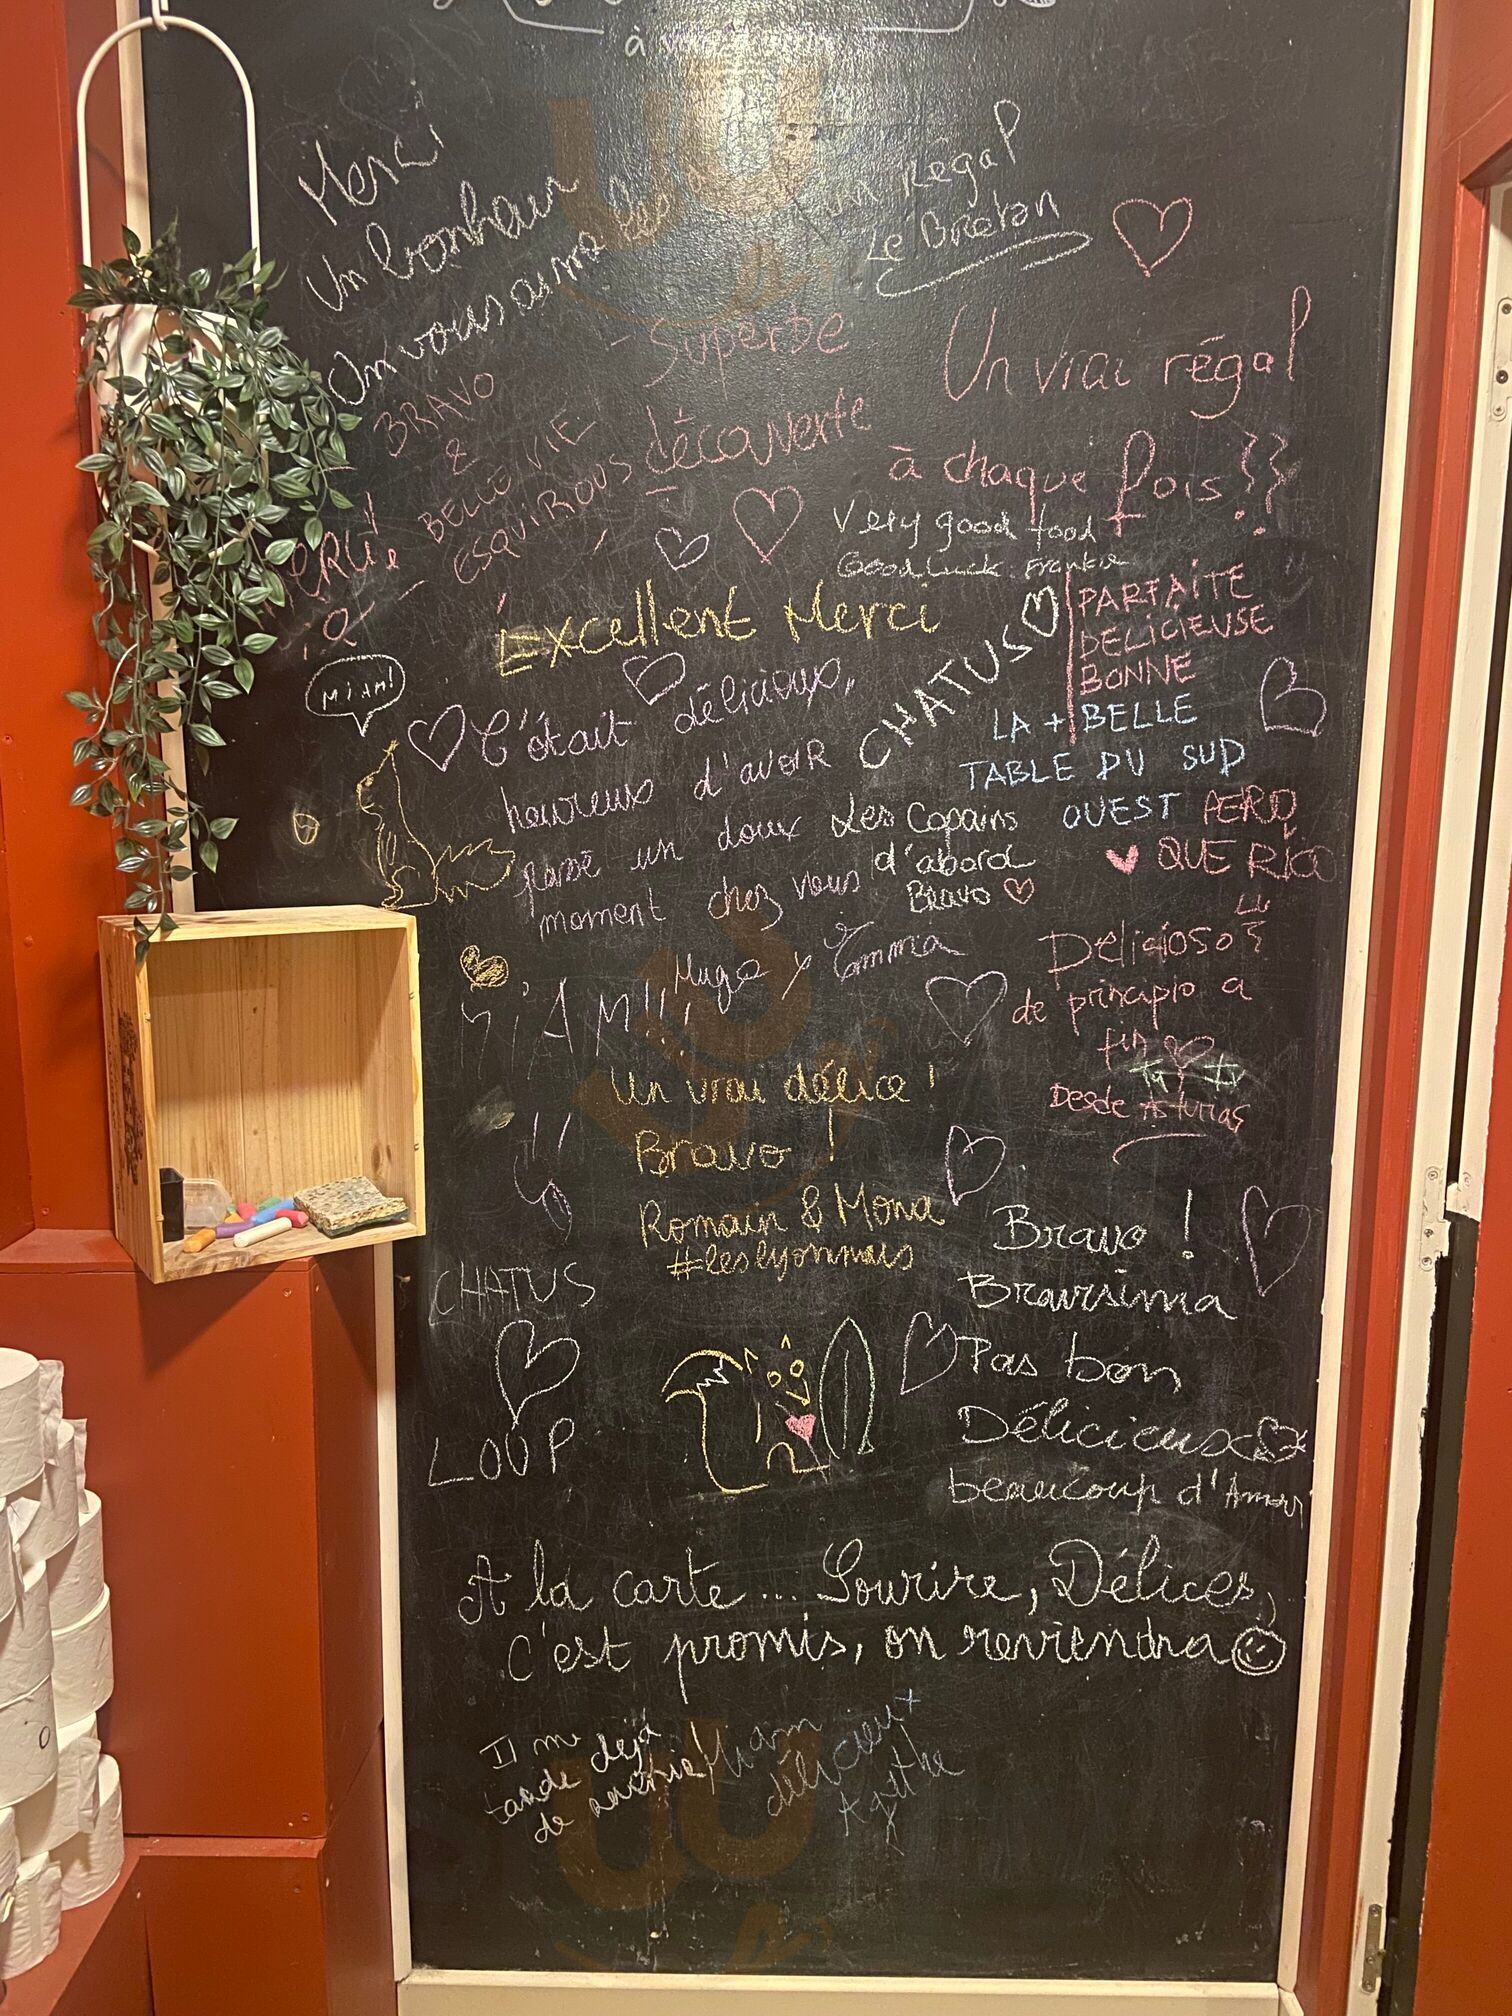 à
Merci
Un bonheur
On vous aime
un Régal
Le Breton
BRAVO
&
BELLE VIE
ESQUIROUS
Superbe
découverte
Un vrai régal
à chaque fois !!
Very good food
Good Luck. Frankie
Excellent Merci
CHATUS
PARFAITE
DELICIEUSE
BONNE
LA + BELLE
TABLE DU SUD
OUEST
PERO
QUE RICO
MIAM!
C'était délicieux,
heureux d'avoir
passé un doux
moment chez vous
Hugo y Emma
Les Copains
d'abord
Bravo
MIAM!!!
Delicioso
de principio a
fin
Desde Asturias
Un vrai délice !
Bravo !
Romain & Mona
#leslyonnais
CHATUS
LOUP
Bravo !
Bravissima
Pas bon
Délicieux
beaucoup d'Amour
A la carte... Sourire, Délices,
C'est promis, on reviendra
Il me
tarde déjà
de revenir!
Miam
délicieux
Agathe